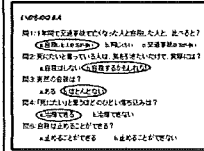 問1:1年間で交通事故で亡くなった人と自殺した人と、比べると?
a.自殺した人のほうが多い b.同じくらい c.交通事故のほうが多い
問2:死にたいと言っている人は、気を引きたいだけで、実際には?
a.自殺はしない b.自殺するかもしれない
問3:突然の自殺は?
a.ある b.ほとんどない
問4:「死にたい」と思うほどのひどい落ち込みは?
a.治療できる b.治療できない
問5:自殺は止めることができる?
a.止めることができる b.止めることができない